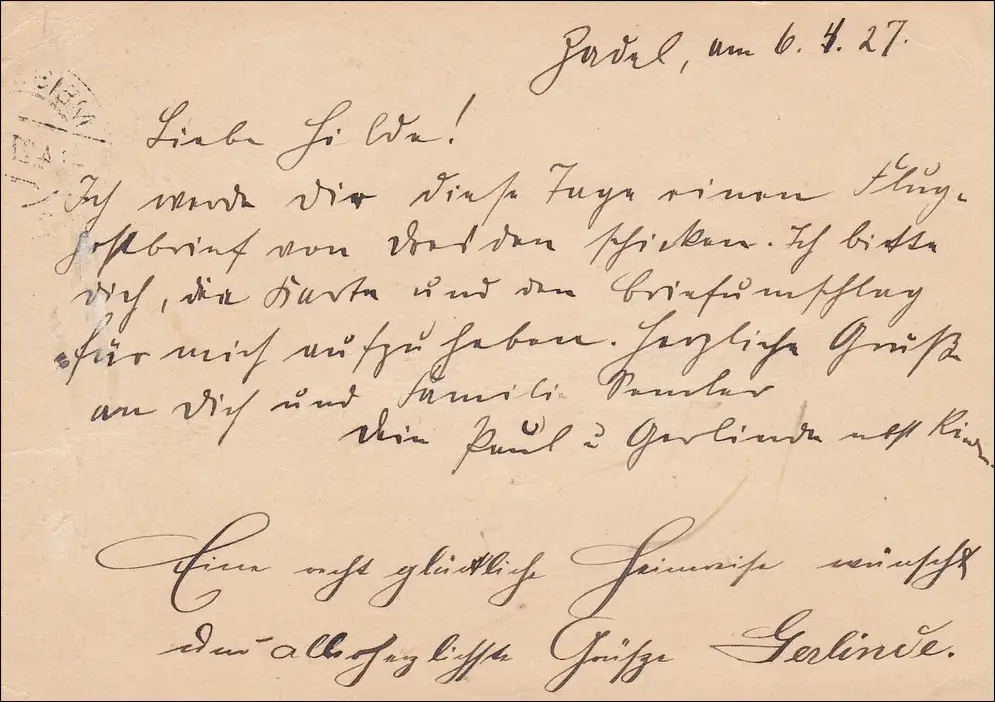 Zadel, am 6. 4. 27.
Liebe Hilde!
Ich werde Dir diese Tage einen Flug-
postbrief von Dresden schicken. Ich bitte
Dich, die Karte und den Briefumschlag
für mich aufzuheben. Herzliche Grüße
an Dich und Familie
Dein Paul u Gerlinde nebst
Eine recht glückliche Heimreise wünscht
und allerherzlichste Grüsze Gerlinde.